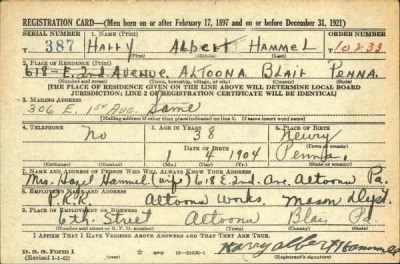 REGISTRATION CARD—(Men born on or after February 17, 1897 and on or before December 31, 1921)
SERIAL NUMBER 1. NAME (Print) ORDER NUMBER
T 387 Harry Albert Hammel T 10833
(First) (Middle) (Last)
2. PLACE OF RESIDENCE (Print)
618-E. 2nd Avenue Altoona Blair Penna.
(Number and street) (Town, township, village, or city) (County) (State)
[THE PLACE OF RESIDENCE GIVEN ON THE LINE ABOVE WILL DETERMINE LOCAL BOARD
JURISDICTION; LINE 2 OF REGISTRATION CERTIFICATE WILL BE IDENTICAL]
3. MAILING ADDRESS
306 E. 1st Ave. Same
[Mailing address if other than place indicated on line 2. If same insert word same]
4. TELEPHONE 5. AGE IN YEARS 6. PLACE OF BIRTH
No 38 Newry
DATE OF BIRTH (Town or county)
1 4 1904 Penna.
(Exchange) (Number) (Mo.) (Day) (Yr.) (State or country)
7. NAME AND ADDRESS OF PERSON WHO WILL ALWAYS KNOW YOUR ADDRESS
Mrs. Hazel Hammel (wife) 618 E. 2nd. Ave Altoona Pa.
8. EMPLOYER'S NAME AND ADDRESS
P.R.R. Altoona Works. Mason Dept.
9. PLACE OF EMPLOYMENT OR BUSINESS
6th. Street Altoona Blair Pa.
(Number and street or R. F. D. number) (Town) (County) (State)
I AFFIRM THAT I HAVE VERIFIED ABOVE ANSWERS AND THAT THEY ARE TRUE.
Harry Albert Hammel
D. S. S. Form 1
(Registrant's signature)